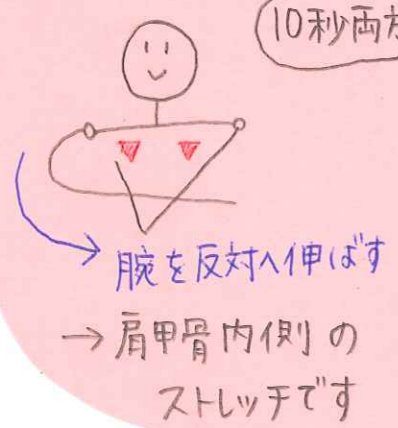 10秒両方
腕を反対へ伸ばす
→肩甲骨内側の
ストレッチです